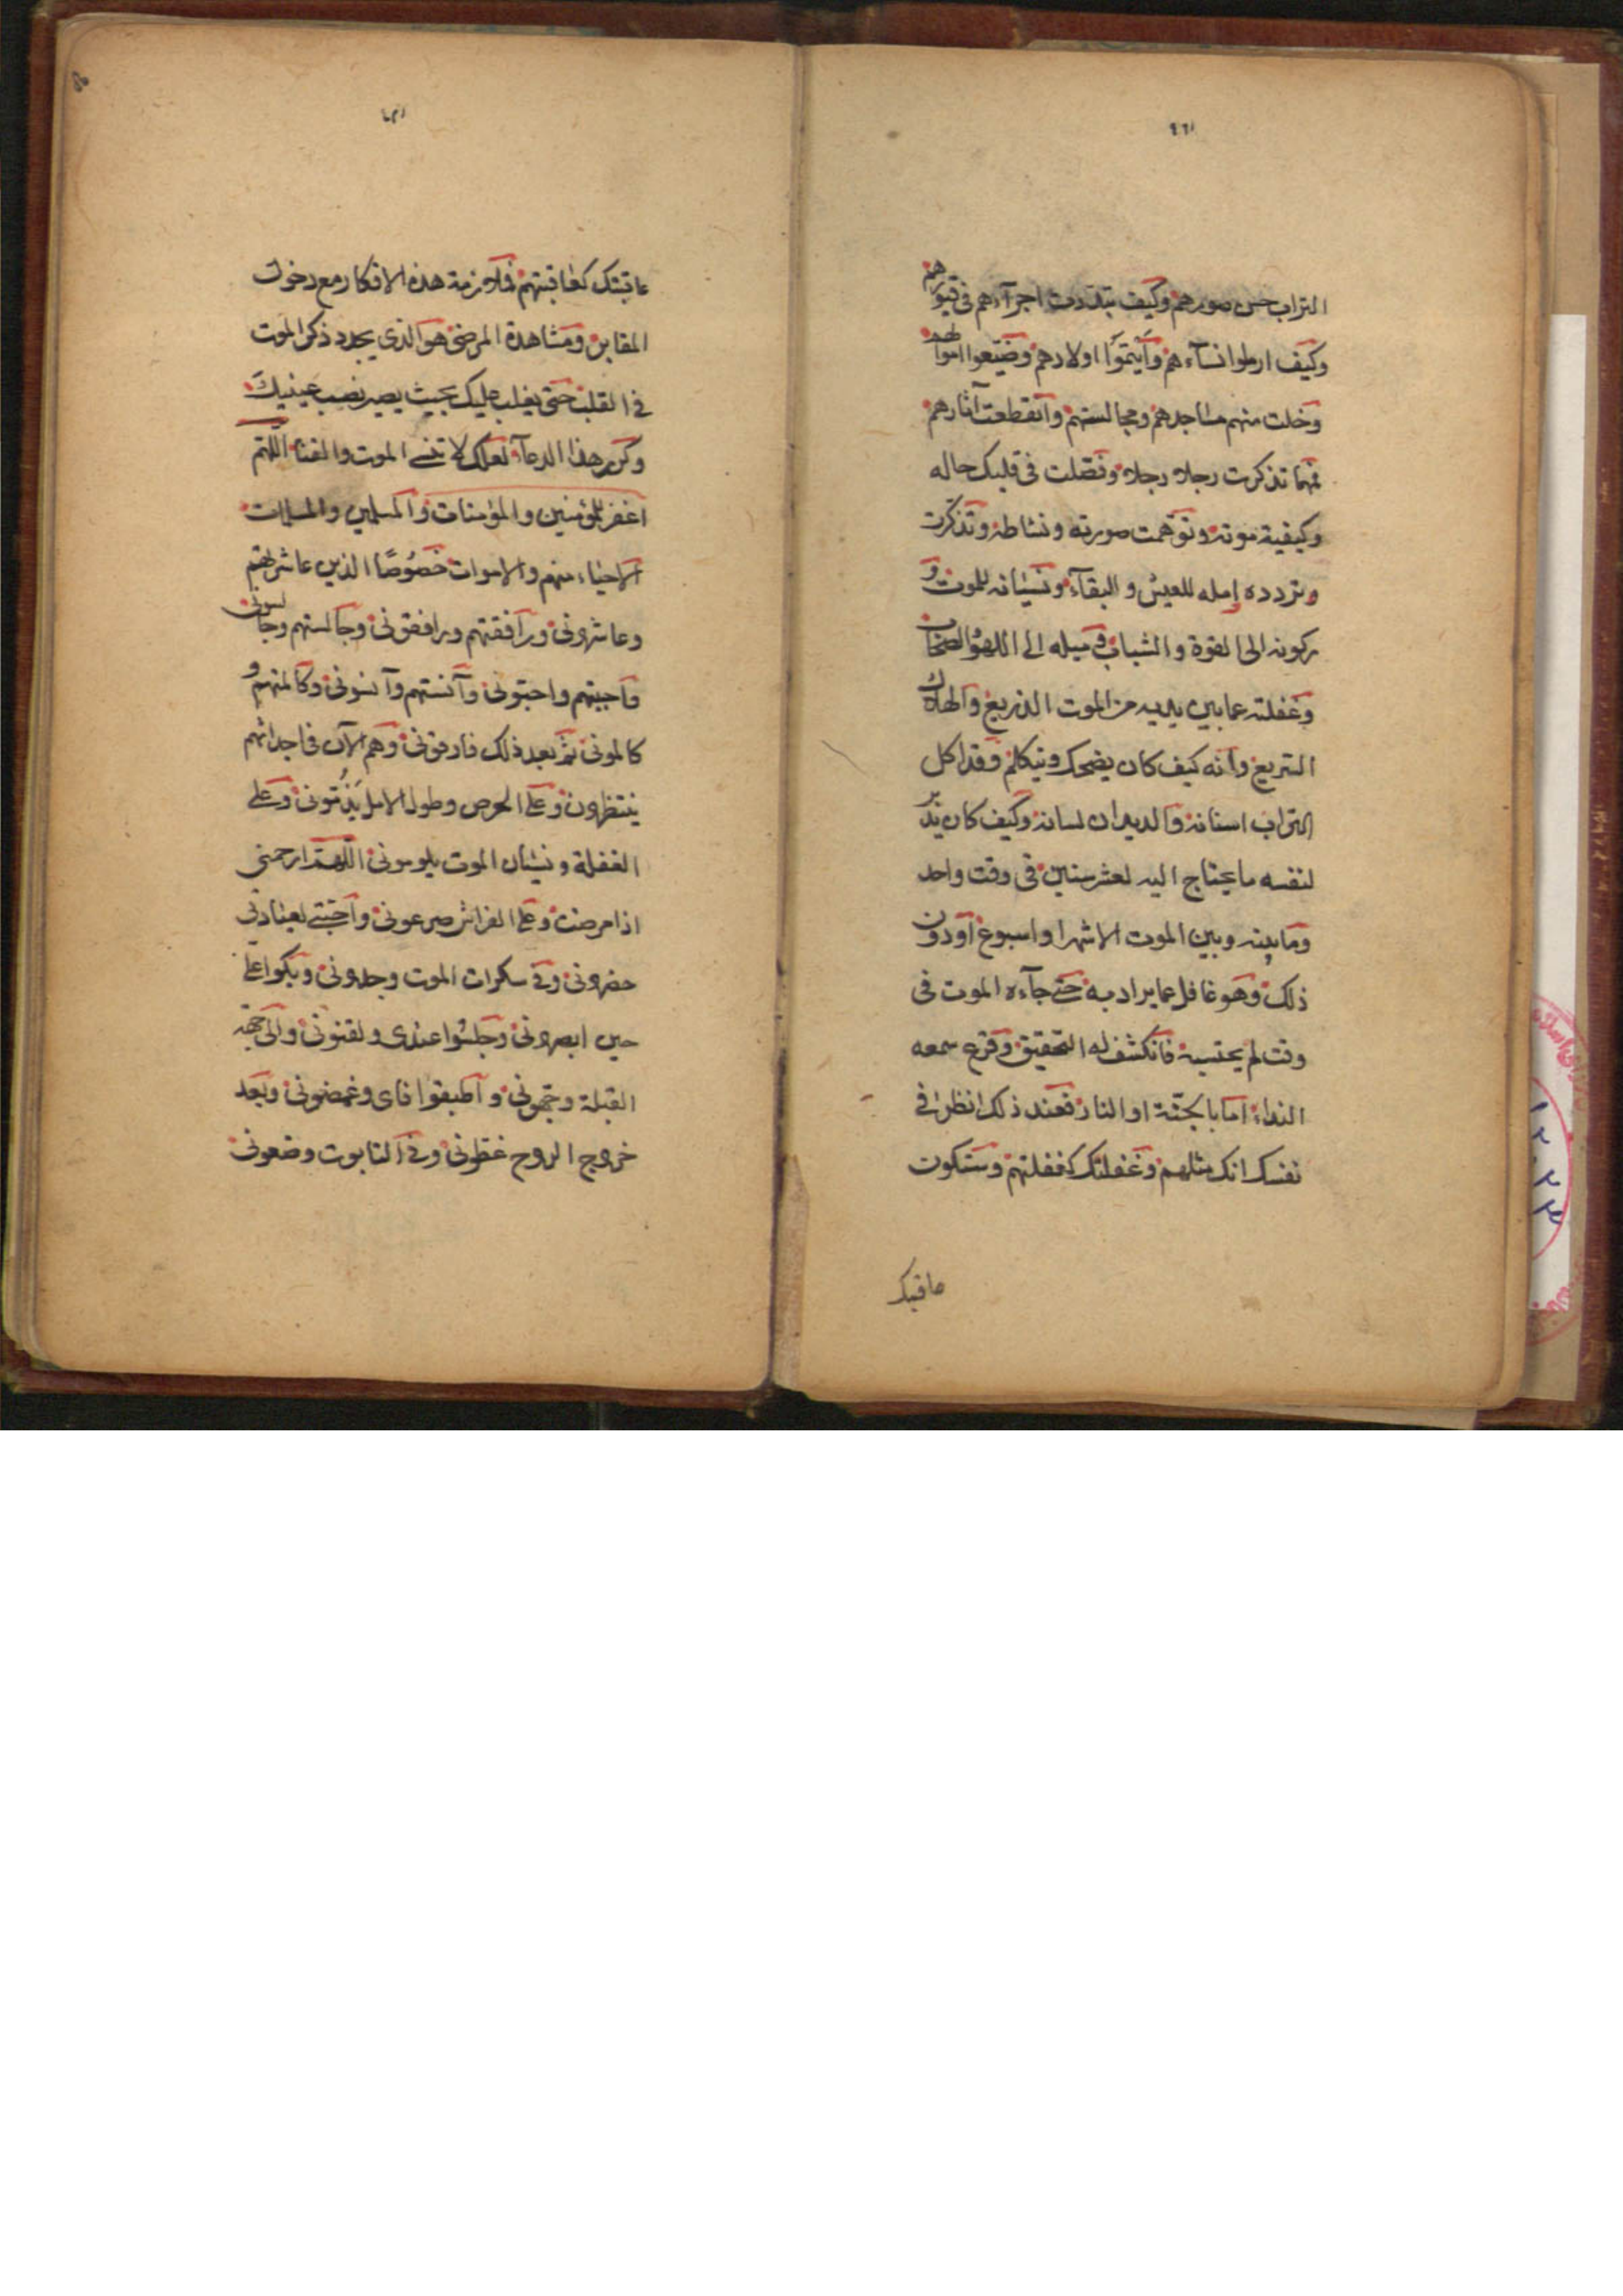 التراب حسن صورهم وكيف تبددت اجزآءهم فى قبورهم
وكيف ارملوا نسآءهم وأيتموا اولادهم وضيعوا اموالهم
وخلت منهم مساجدهم ومجالستهم وانقطعت آثارهم
فمهما تذكرت رجلا رجلا وفصلت فى قلبك حاله
وكيفية موته وتوهمت صورته ونشاطه وتذكرت
وتردده امله للعيش والبقآء ونسيانه للموت و
ركونه الى القوة والشباب وميله الى اللهو والضحك
وغفلته عما بين يديه من الموت الذريع والهلاك
السريع وانه كيف كان يضحك ويتكلم وقد اكل
التراب اسنانه والديدان لسانه وكيف كان يدبر
لنفسه ما يحتاج اليه لعشر سنين فى وقت واحد
وما بينه وبين الموت الا شهرا واسبوع او دون
ذلك وهو غافل عما يراد به حتى جآءه الموت فى
وقت لم يحتسبه فانكشف له التحقيق وقرع سمعه
الندا اما بالجنة او النار فعند ذلك انظر فى
نفسك انك مثلهم وغفلتك كغفلتهم وستكون
عاقبتك
عاقبتك كعاقبتهم فملازمة هذه الافكار مع دخول
المقابر ومشاهدة المرضى هو الذى يجدد ذكر الموت
فى القلب حتى يغلب عليك بحيث يصير نصب عينيك
وكرر هذا الدعآء لعلك لا تنسى الموت والفنا اللهم
اغفر للمؤمنين والمؤمنات والمسلمين والمسلمات
الاحياء منهم والاموات خصوصا الذين عاشرتهم
وعاشرونى ورافقتهم ورافقونى وجالستهم وجالسونى
واحببتهم واحبونى وآنستهم وآنسونى وكالمتهم و
كالمونى ثم بعد ذلك فارقونى وهم الآن فى اجداثهم
ينتظرون وعلى الحرص وطول الامل يذمونى وعلى
الغفلة ونسيان الموت يلومونى اللهم ارحمنى
اذا مرضت وعلى الفراش صرعونى واحبتى لعيادتى
حضرونى وفى سكرات الموت وجدونى وبكوا على
حين ابصرونى وجلسوا عندى ولقنونى والى جهة
القبلة وجهونى واطبقوا فاى وغمضونى وبعد
خروج الروح غطونى وفى التابوت وضعونى